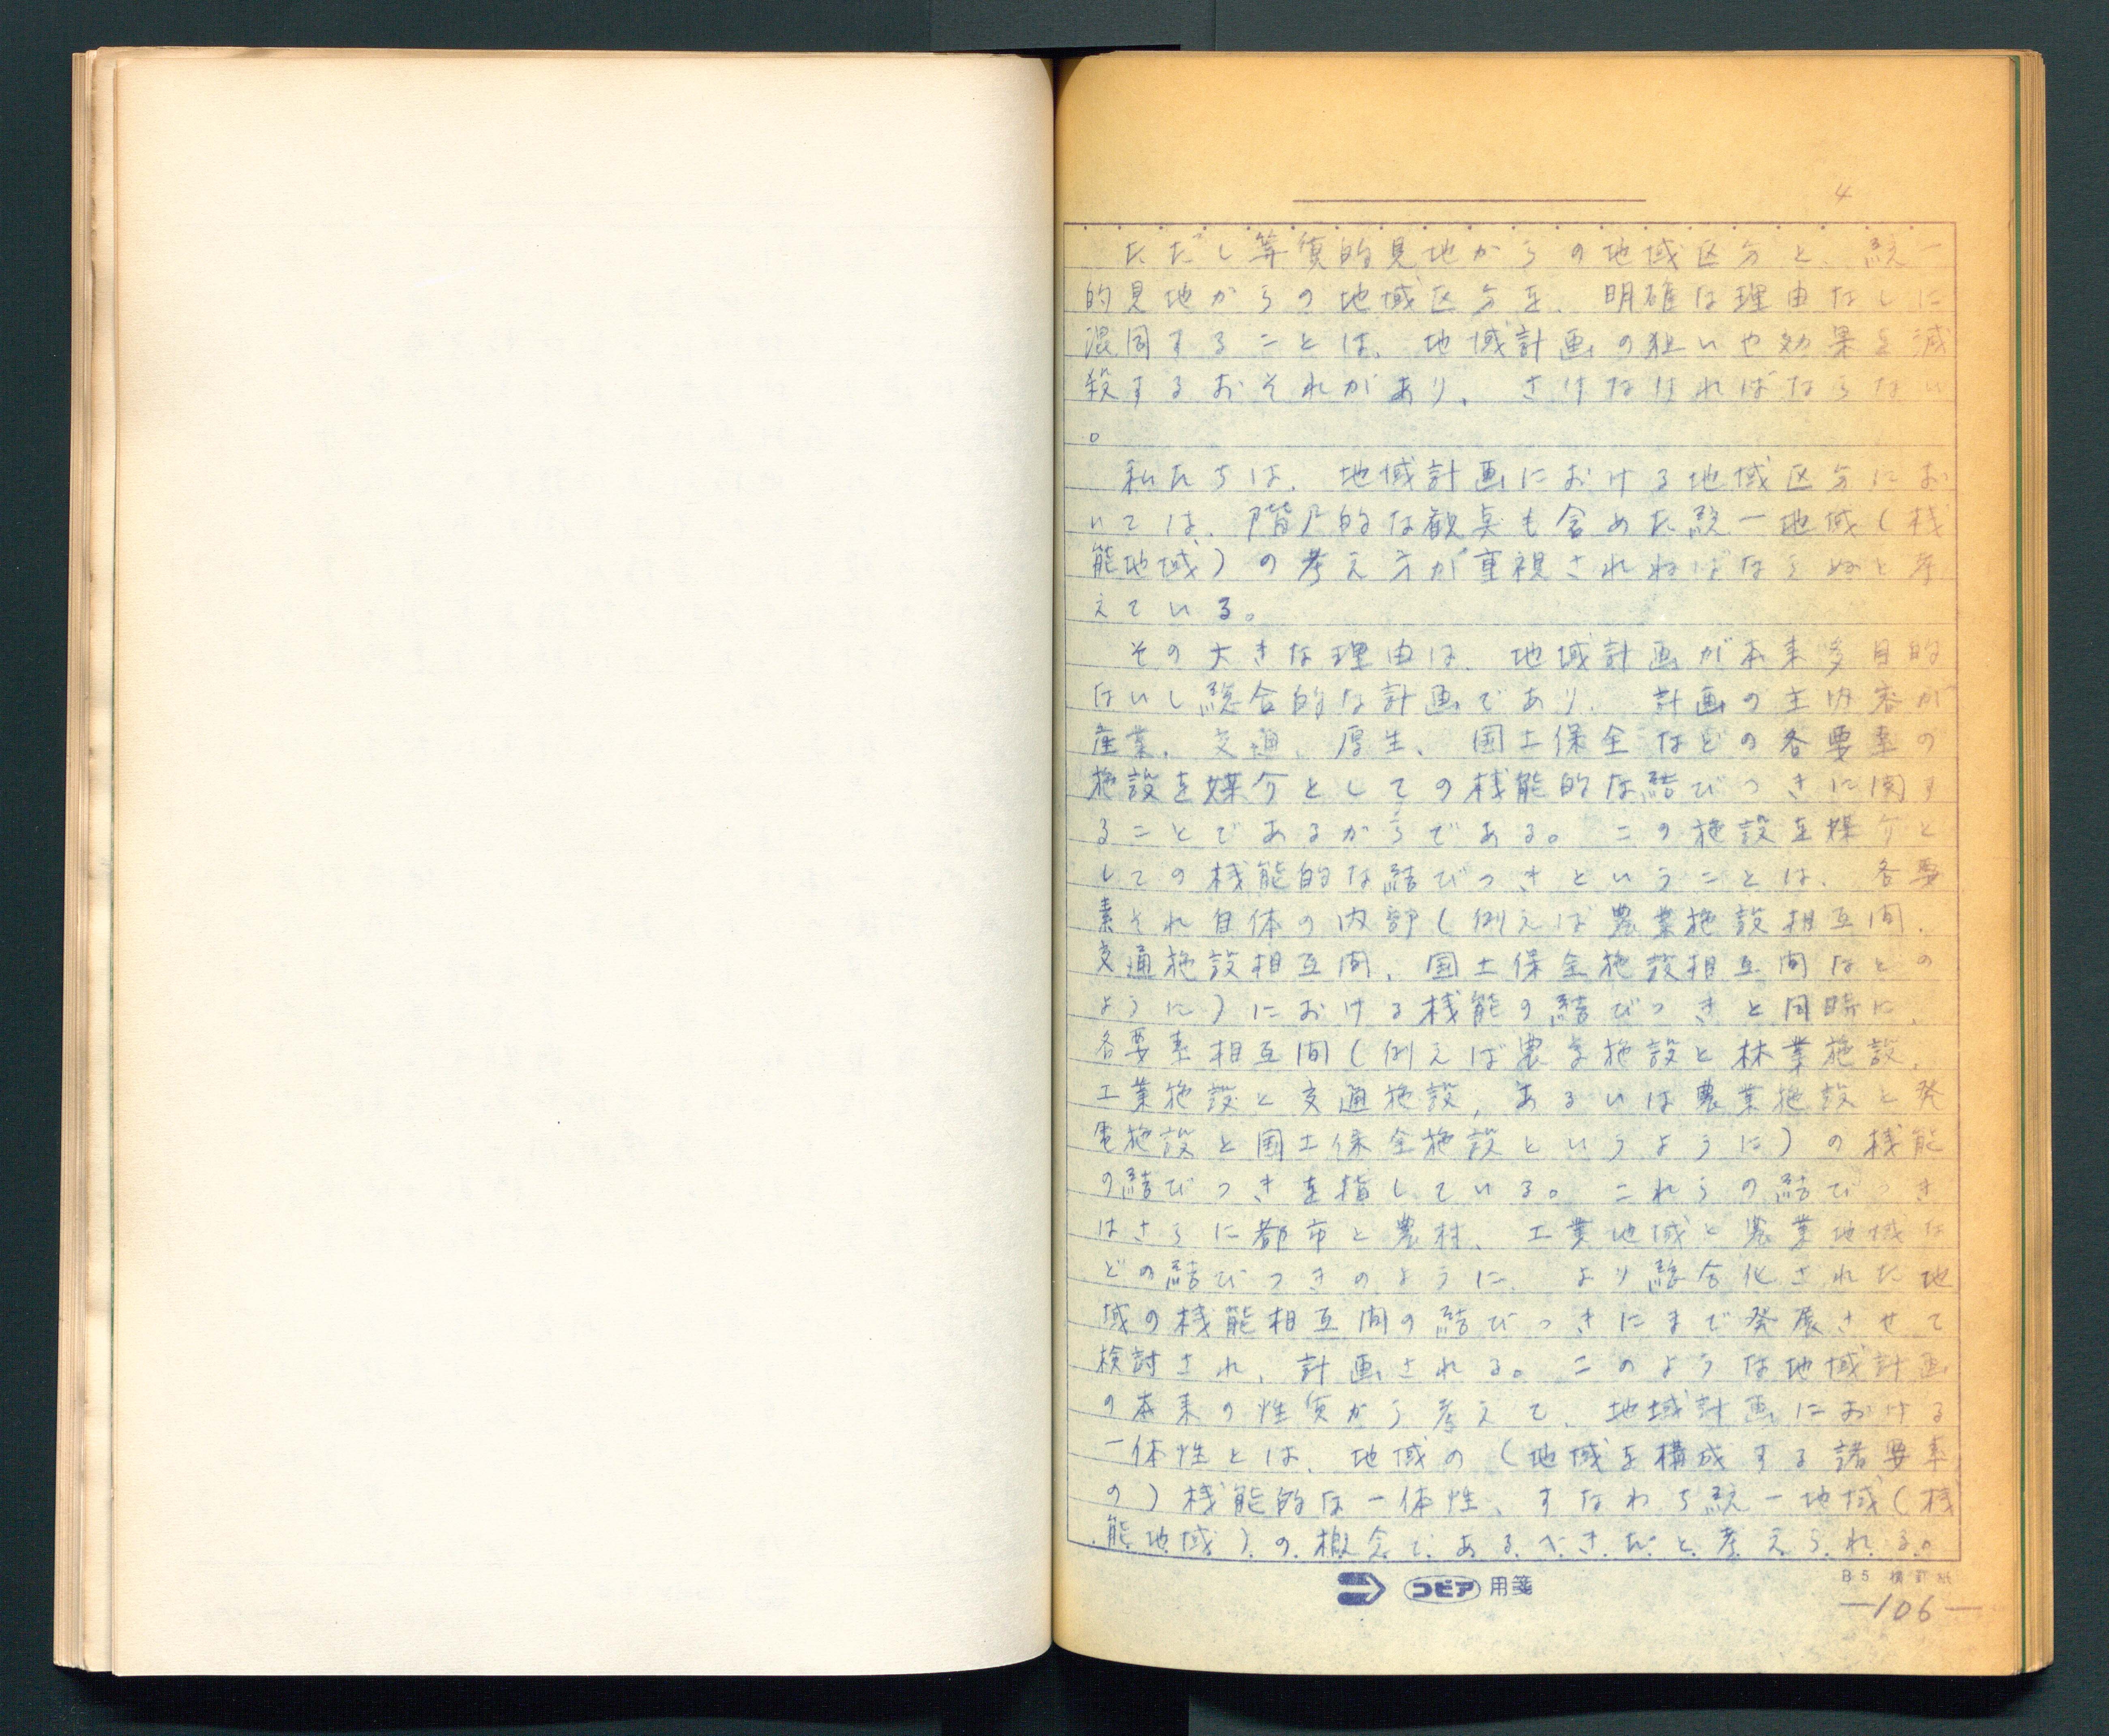 4
ただし等質的見地からの地域区分と、統一
的見地からの地域区分を、明確な理由なしに
混同することは、地域計画の狙いや効果を減
殺するおそれがあり、さけなければならない
。
私たちは、地域計画における地域区分にお
いては、階尸的な観点も含めた統一地域(桟
能地域)の考え方が重視されねばならぬと考
えている。
その大きな理由は、地域計画が本来多目的
ないし総合的な計画であり、計画の主内容が
産業、交通、厚生、国土保全などの各要素の
施設を媒介としての桟能的な結びつきに関す
ることであるからである。この施設を媒介と
しての桟能的な結びつきということは、各要
素それ自体の内部(例えば農業施設相互間、
交通施設相互間、国土保全施設相互間などの
ように)における桟能の結びつきと同時に、
各要素相互間(例えば農業施設と林業施設、
工業施設と交通施設、あるいは農業施設と発
電施設と国土保全施設というように)の桟能
の結びつきを指している。これらの結びつき
はさらに都市と農村、工業地域と農業地域な
どの結びつきのように、より総合化された地
域の桟能相互間の結びつきにまで発展させて
検討され、計画される。このような地域計画
の本来の性質から考えて、地域計画における
一体性とは、地域の(地域を構成する諸要素
の)桟能的な一体性、すなわち統一地域(桟
能地域)の概念であるべきだと考えられる。
コピア 用箋
B5 横罫紙
—106—